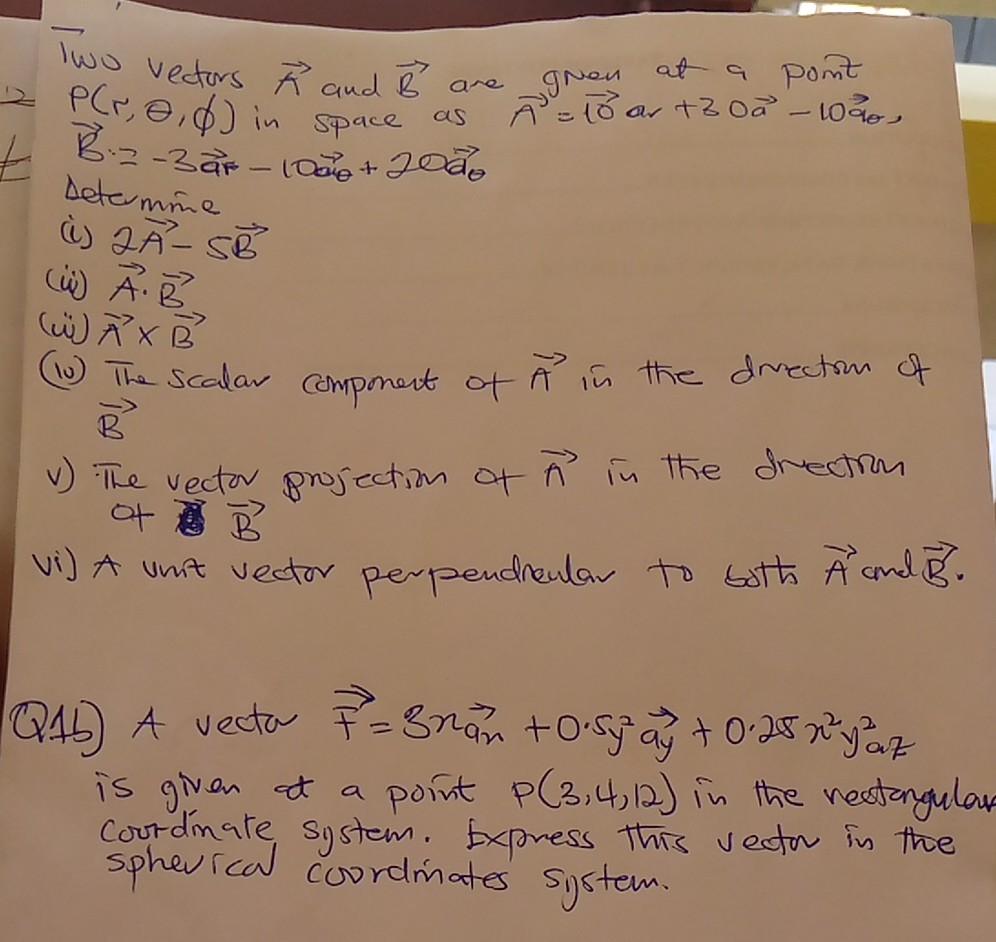 Two vectors A⃗ and B⃗ are given at a point
P(r, θ, ϕ) in space as A⃗ = 10⃗ ar + 30a⃗ − 10a⃗θ,
B⃗ = -3a⃗r − 10a⃗θ + 20a⃗θ
Determine
(i) 2A⃗ − 5B⃗
(ii) A⃗ . B⃗
(iii) A⃗ X B⃗
(iv) The scalar component of A⃗ in the direction of
B⃗
v) The vector projection of A⃗ in the direction
of B⃗
vi) A unit vector perpendicular to both A⃗ and B⃗.
Q1b) A vector F⃗ = 3xa⃗x + 0.5y² a⃗y + 0.25 x²y²az
is given at a point P(3,4,12) in the rectangular
coordinate system. Express this vector in the
spherical coordinates system.